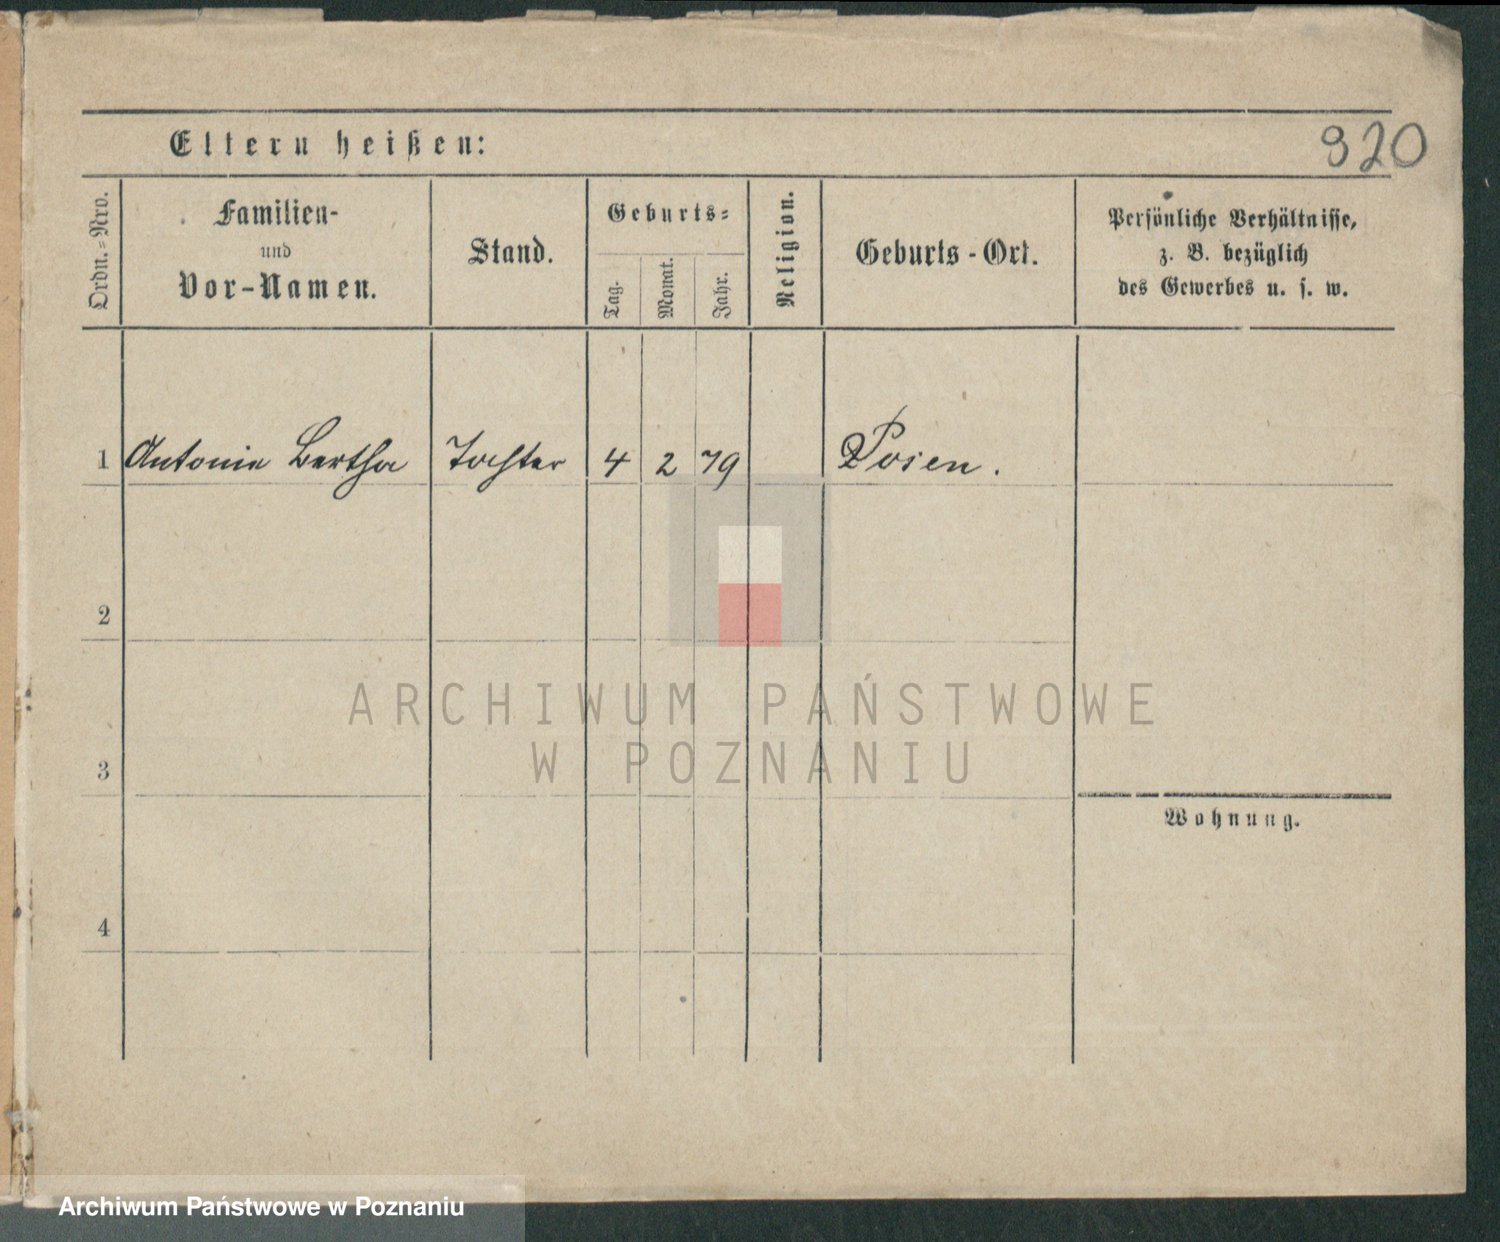 Eltern heißen:
320
Ordn.-Nro.
Familien-
und
Vor-Namen.
Stand.
Geburts-
Tag.
Monat.
Jahr.
Religion.
Geburts-Ort.
Persönliche Verhältnisse,
z. B. bezüglich
des Gewerbes u. s. w.
1 Antonie Bertha Tochter 4 2 79 Posen.
2
3
4
Wohnung.
ARCHIWUM PAŃSTWOWE
W POZNANIU
Archiwum Państwowe w Poznaniu